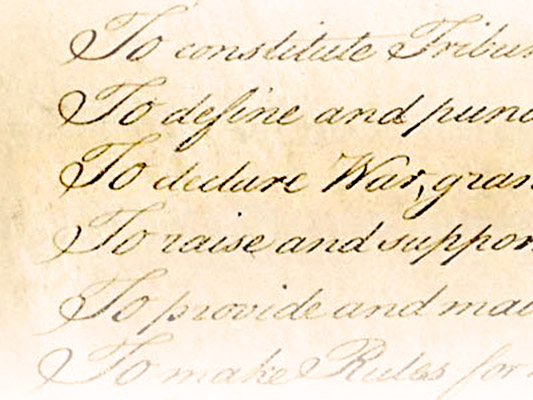 To constitute Tribu
To define and pun
To declare War, gran
To raise and suppor
To provide and mai
To make Rules for